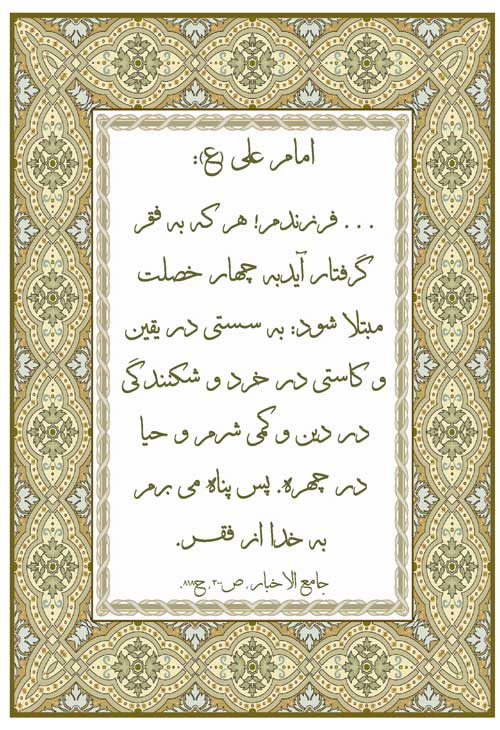 امام علی (ع):
... فرزندم! هر که به فقر
گرفتار آیدبه چهار خصلت
مبتلا شود: به سستی در یقین
و کاستی در خرد و شکنندگی
در دین و کمی شرم و حیا
در چهره. پس پناه می برم
به خدا از فقر.
جامع الاخبار، ص۳۰۰، ح۸۱۸.